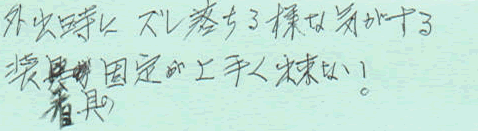 外出時に ズレ落ちる様な気がする
装着具の固定が上手く出来ない!